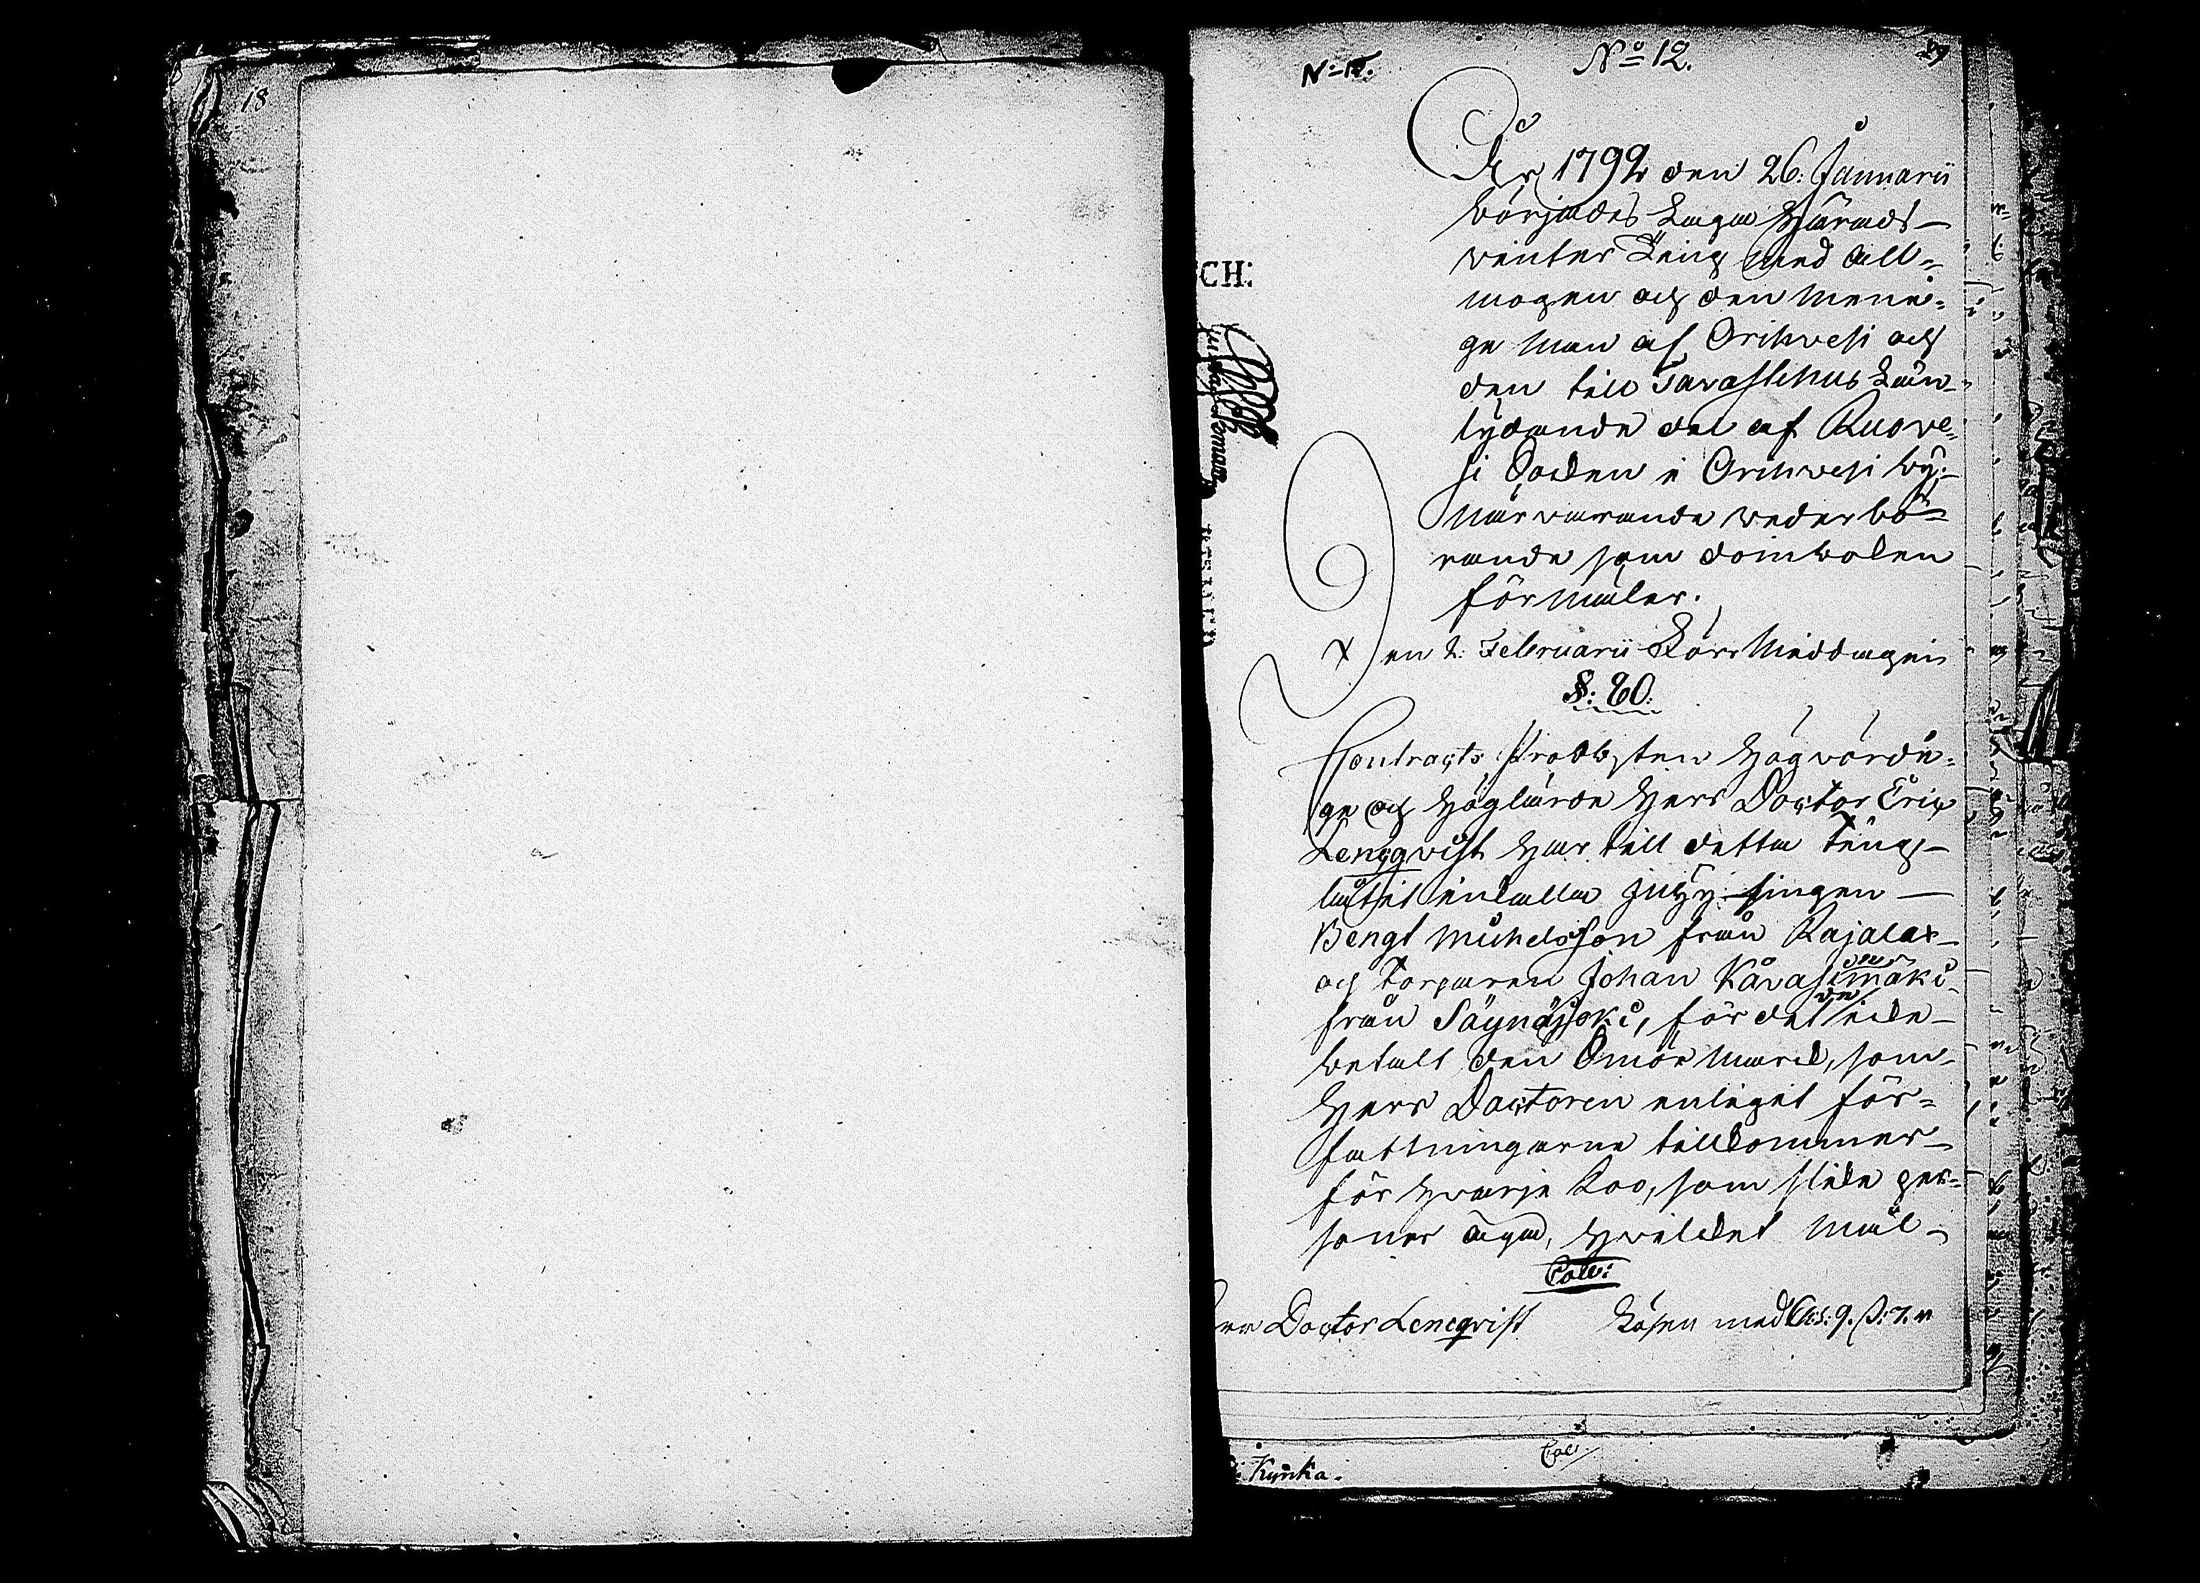 18
N:o 12.
89
CH:
År 1792 den 26. Januarii
börjades Laga Härads
winter Ting med All-
mogen och den meni-
ge Man af Orihvesi och
den till Tavastehus Län
lydande del af Ruove-
si Socken i Orihvesi by;
närvarande wederbö-
rande som domboken
förmäler.
Den 2. Februarii Förr Middagen
§: 20.
Contracts Probsten Högvördi-
ge och Höglärde Herr Doctor Eric
Lencqvist har till detta Ting
låtit inkalla
Bengt Michelsson från Rajalax
och Torparen Johan Kåvasimäki
från Säynäjoki, för det de icke
betalt den Smör Mark, som
Herr Doctoren enligit för-
fattningarne tillkommer
för hvarje Koo, som slike per-
soner äga, hvilcket mål
Coll:
Doctor Lencqvist Lösen med
Kynka.
Coll: